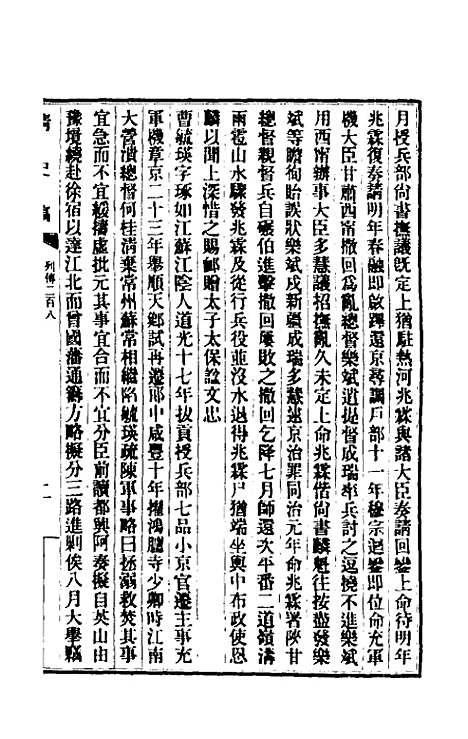 月授兵部尚書撫議旣定上猶駐熱河兆霖與諸大臣奏請回鑾上命待明年
兆霖復奏請明年春融卽啟蹕還京尋調戶部十一年穆宗迴鑾卽位命充軍
機大臣甘肅西甯撒回爲亂總督樂斌遣提督成瑞率兵討之逗撓不進樂斌
用西甯辦事大臣多慧議招撫亂久未定上命兆霖偕尚書麟魁往按盡發樂
斌等瞻徇貽誤狀樂斌戍新疆成瑞多慧逮京治罪同治元年命兆霖署陝甘
總督親督兵自碾伯進擊撒回屢敗之撒回乞降七月師還次平番二道嶺溝
雨雹山水驟發兆霖及從行兵役並沒水退得兆霖尸猶端坐輿中布政使恩
麟以聞上深惜之賜卹贈太子太保諡文忠
曹毓瑛字琢如江蘇江陰人道光十七年拔貢授兵部七品小京官遷主事充
軍機章京二十三年舉順天鄉試再遷郎中咸豐十年擢鴻臚寺少卿時江南
大營潰總督何桂清棄常州蘇常相繼陷毓瑛疏陳軍事略曰拯溺救焚其事
宜急而不宜緩擣虛批亢其事宜合而不宜分臣前讀都興阿奏擬自英山由
豫境繞赴徐宿以達江北而曾國藩通籌方略擬分三路進剿俟八月大舉竊
清史稿
列傳二百八
二